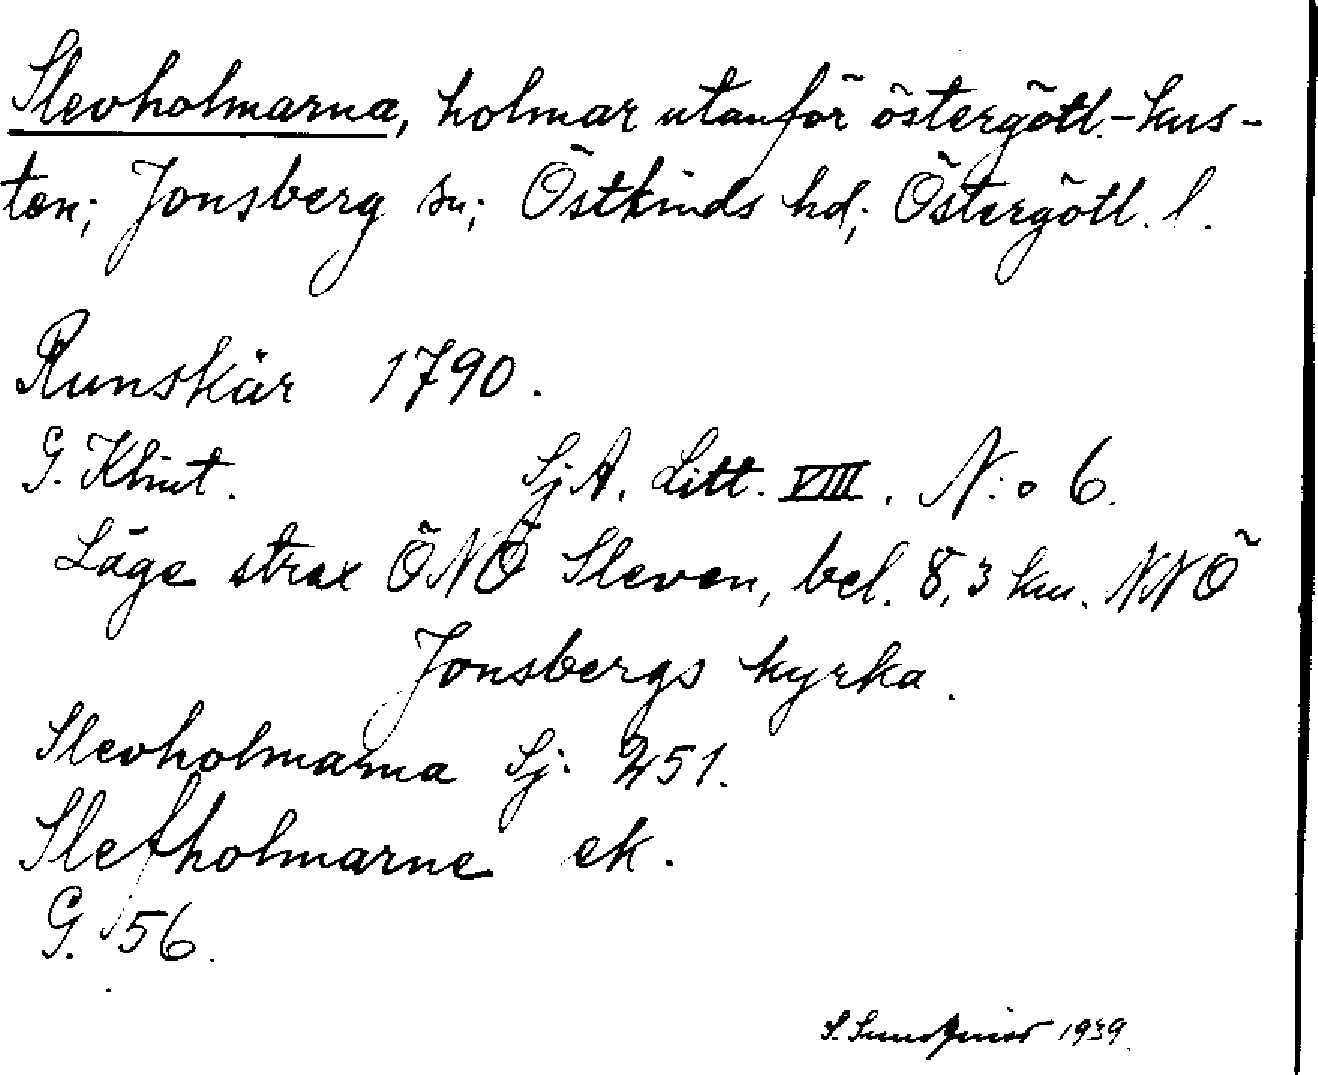 Slevholmarna, holmar utanför östergötl.-kus-
ten; Jonsberg sn; Östkinds hd; Östergötl. l.
Runskär 1790.
G. Klint. SjA. Litt. VIII. N:o 6.
Läge strax ÖNÖ Sleven, bel. 8,3 km. NNÖ
Jonsbergs kyrka.
Slevholmarna Sj. 251.
Slefholmarne ek.
G. 56.
S. 1939